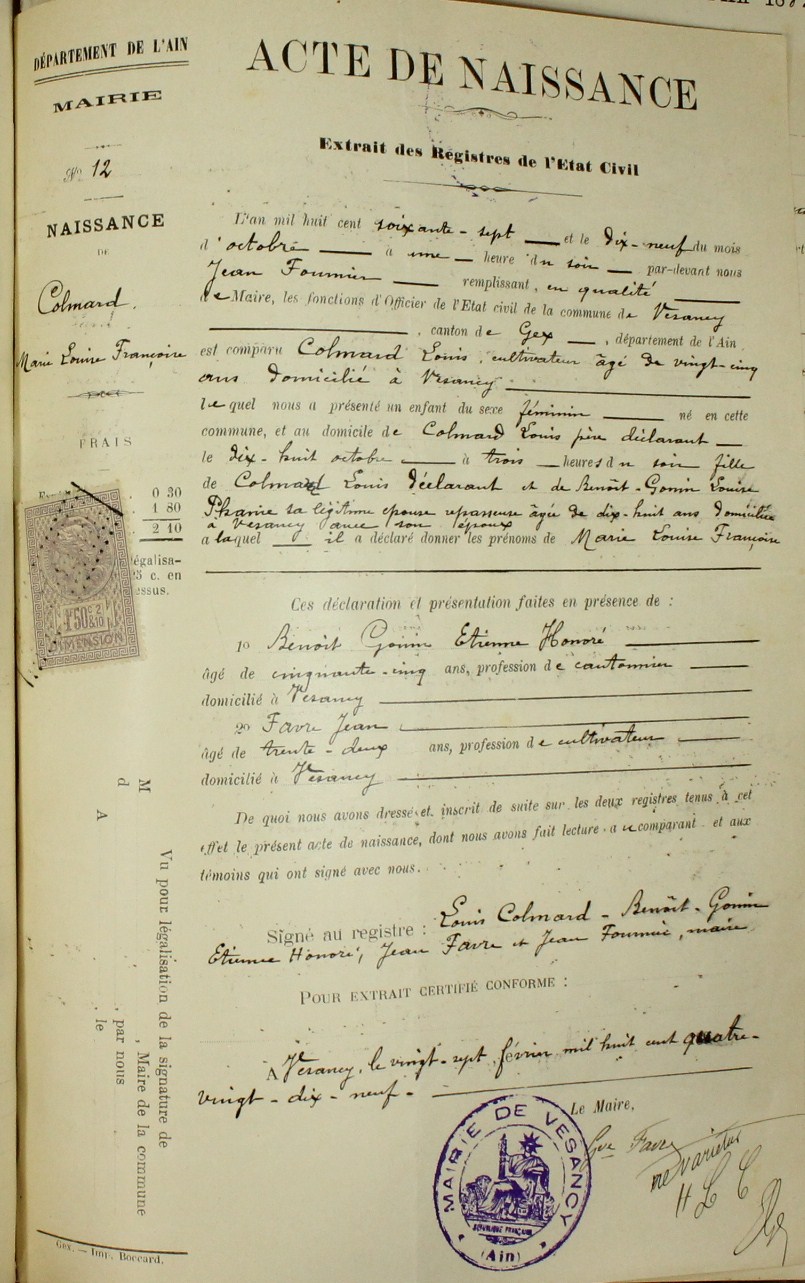 DÉPARTEMENT DE L'AIN
MAIRIE
No 12
NAISSANCE
DE
Colmard
Marie Louise Françoise
FRAIS
0 30
1 80
2 10
égalisa-
25 c. en
essus.
1f50c 2/10
DIMENSION
ACTE DE NAISSANCE
Extrait des Registres de l'Etat Civil
L'an mil huit cent soixante-sept et le Dix-neuf du mois
d'octobre à une heure du soir par-devant nous
Jean Fournier remplissant, en qualité
de Maire, les fonctions d'Officier de l'Etat civil de la commune de Vesancy
, canton de Gex, département de l'Ain
est comparu Colmard Louis, cultivateur âgé de vingt-cinq
ans domicilié à Vesancy
Lequel nous a présenté un enfant du sexe féminin né en cette
commune, et au domicile de Colmard Louis père déclarant
le dix-huit octobre à trois heures du soir fille
de Colmard Louis déclarant et de Benoît-Gonin Louise
sa légitime épouse repasseuse âgée de dix-huit ans domiciliée
à Vesancy avec son époux
a laquel il a déclaré donner les prénoms de Marie Louise Françoise
Ces déclaration et présentation faites en présence de :
1o Benoît Gonin Etienne Honoré
âgé de cinquante-cinq ans, profession de cantonnier
domicilié à Vesancy
2o Favre Jean
âgé de trente-deux ans, profession de cultivateur
domicilié à Vesancy
De quoi nous avons dressé et inscrit de suite sur les deux registres tenus à cet
effet le présent acte de naissance, dont nous avons fait lecture au comparant et aux
témoins qui ont signé avec nous.
Signé au registre : Louis Colmard - Benoît-Gonin
Etienne Honoré, Jean Favre et Jean Fournier, maire
POUR EXTRAIT CERTIFIÉ CONFORME :
A Vesancy, le vingt-sept février mil huit cent quatre-
vingt-dix-neuf-
Le Maire,
Favre
ne varietur
H L C
MAIRIE DE VESANCY
RÉPUBLIQUE FRANÇAISE
(Ain)
Vu pour légalisation de la signature de
M
, Maire de la commune
d
par nous
A
le
Gex. — Imp. Boccard.